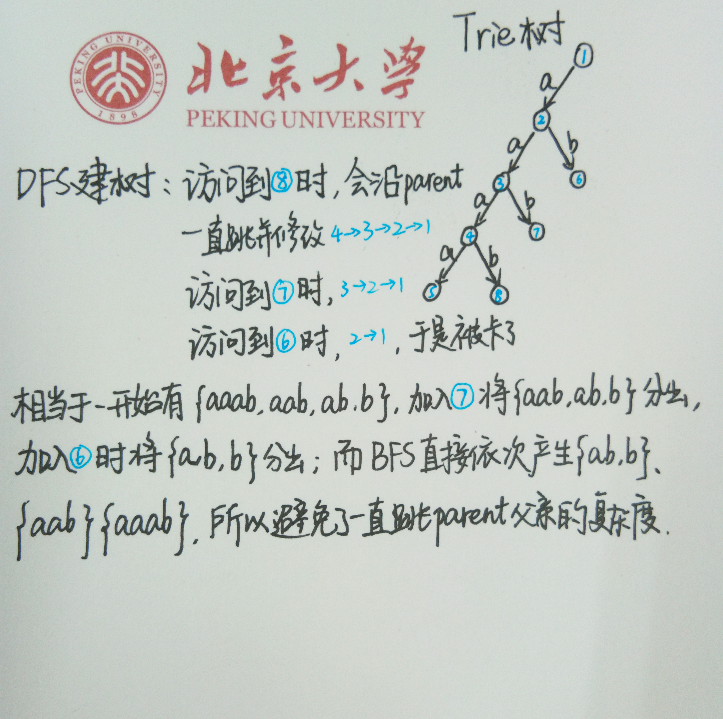 Trie树
PEKING UNIVERSITY
1898
北京大学
PEKING UNIVERSITY
1
a
2
a
b
3
6
a
b
4
7
a
b
5
8
DFS建树：访问到⑧时，会沿parent
一直跳并修改 4→3→2→1
访问到⑦时，3→2→1
访问到⑥时，2→1，于是被卡了
相当于一开始有{aaab,aab,ab,b}，加入⑦将{aab,ab,b}分出，
加入⑥时将{ab,b}分出；而BFS直接依次产生{ab,b}、
{aab}{aaab}，所以避免了一直跳parent父亲的复杂度.